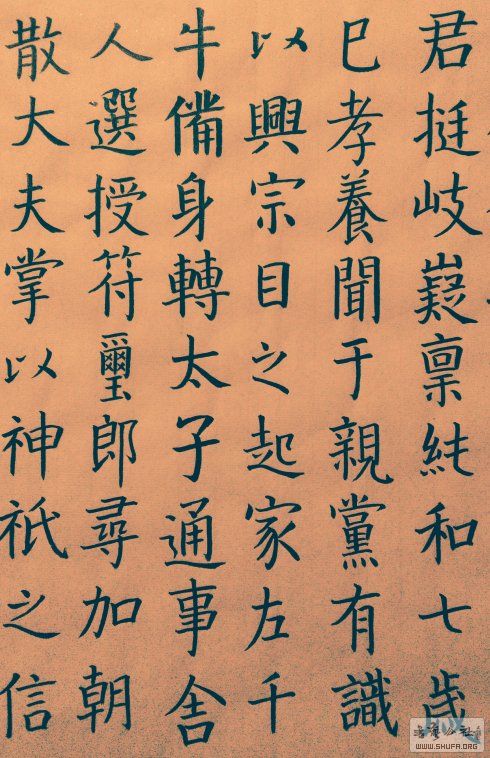 君挺岐嶷禀純和七歲
巳孝養聞于親黨有識
以興宗目之起家左千
牛備身轉太子通事舍
人選授符璽郎尋加朝
散大夫掌以神祇之信
WWW.SHUFA.ORG